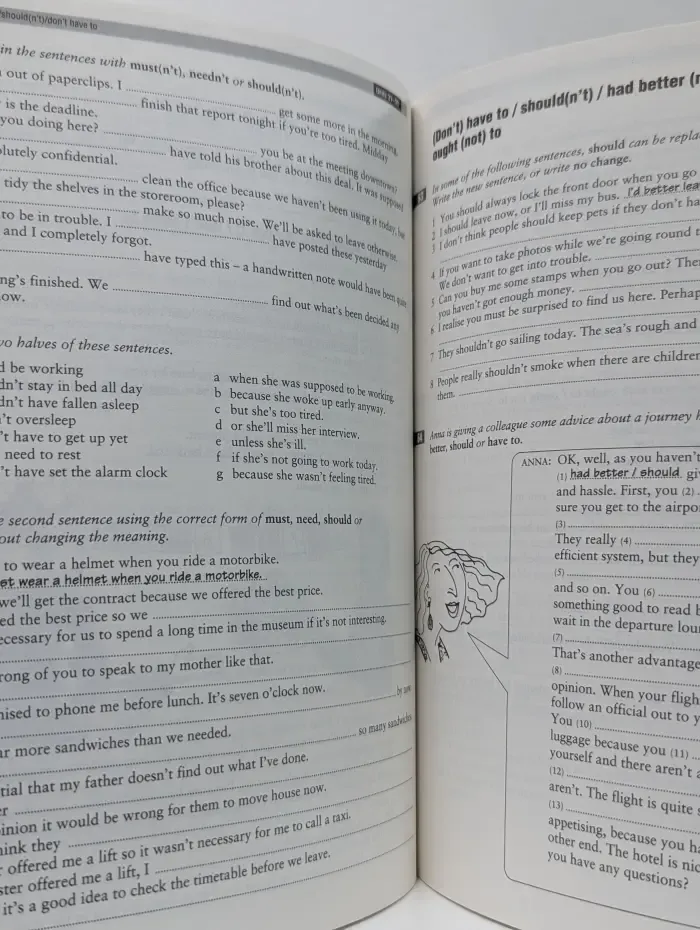 /should(n't)/don't have to
in the sentences with must(n't), needn't or should(n't).
out of paperclips. I ... get some more in the morning.
... finish that report tonight if you're too tired. Midday
is the deadline.
you doing here? ... you be at the meeting downstairs?
... have told his brother about this deal. It was supposed
lutely confidential.
... clean the office because we haven't been using it today, but
tidy the shelves in the storeroom, please?
... make so much noise. We'll be asked to leave otherwise.
to be in trouble. I ... have posted these yesterday
and I completely forgot.
... have typed this – a handwritten note would have been quite
ng's finished. We ... find out what's been decided any
ow.
wo halves of these sentences.
d be working
dn't stay in bed all day
dn't have fallen asleep
't oversleep
't have to get up yet
need to rest
't have set the alarm clock
a when she was supposed to be working.
b because she woke up early anyway.
c but she's too tired.
d or she'll miss her interview.
e unless she's ill.
f if she's not going to work today.
g because she wasn't feeling tired.
e second sentence using the correct form of must, need, should or
out changing the meaning.
to wear a helmet when you ride a motorbike.
et wear a helmet when you ride a motorbike.
we'll get the contract because we offered the best price.
ed the best price so we
ecessary for us to spend a long time in the museum if it's not interesting.
rong of you to speak to my mother like that.
nised to phone me before lunch. It's seven o'clock now.
by now
ar more sandwiches than we needed.
so many sandwiches
tial that my father doesn't find out what I've done.
er
inion it would be wrong for them to move house now.
hink they
offered me a lift so it wasn't necessary for me to call a taxi.
ster offered me a lift, I
it's a good idea to check the timetable before we leave.
(Don't) have to / should(n't) / had better (n
ought (not) to
In some of the following sentences, should can be repla
Write the new sentence, or write no change.
1 You should always lock the front door when you go
2 I should leave now, or I'll miss my bus. I'd better lea
3 I don't think people should keep pets if they don't ha
4 If you want to take photos while we're going round t
We don't want to get into trouble.
5 Can you buy me some stamps when you go out? Ther
you haven't got enough money.
6 I realise you must be surprised to find us here. Perhap
7 They shouldn't go sailing today. The sea's rough and
8 People really shouldn't smoke when there are children
them.
Anna is giving a colleague some advice about a journey h
better, should or have to.
ANNA: OK, well, as you haven't
(1) had better / should gi
and hassle. First, you (2)
sure you get to the airpo
(3)
They really (4)
efficient system, but they
(5)
and so on. You (6)
something good to read b
wait in the departure lou
(7)
That's another advantage
(8)
opinion. When your fligh
follow an official out to y
You (10)
luggage because you (11)
yourself and there aren't a
(12)
aren't. The flight is quite s
(13)
appetising, because you ha
other end. The hotel is nic
you have any questions?